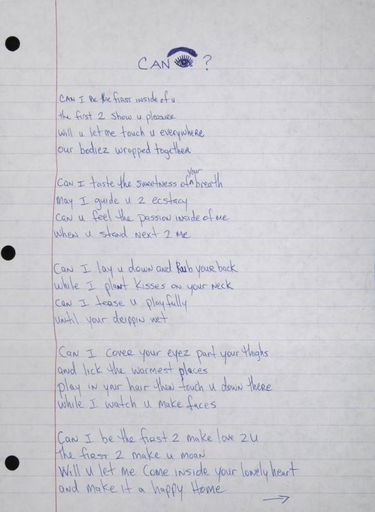 CAN 👁 ?
CAN I Be the first inside of u
the first 2 show u pleasure
will u let me touch u everywhere
our bodiez wrapped together
Can I taste the sweetness of your breath
May I guide u 2 ecstacy
Can u feel the passion inside of me
When u stand next 2 me
Can I lay u down and Rub your back
while I plant kisses on your neck
Can I tease u playfully
until your drippin wet
Can I cover your eyez part your thighs
and lick the warmest places
play in your hair then touch u down there
while I watch u make faces
Can I be the first 2 make love 2 U
the first 2 make u moan
Will u let me Come inside your lonely heart
and make it a happy Home
→